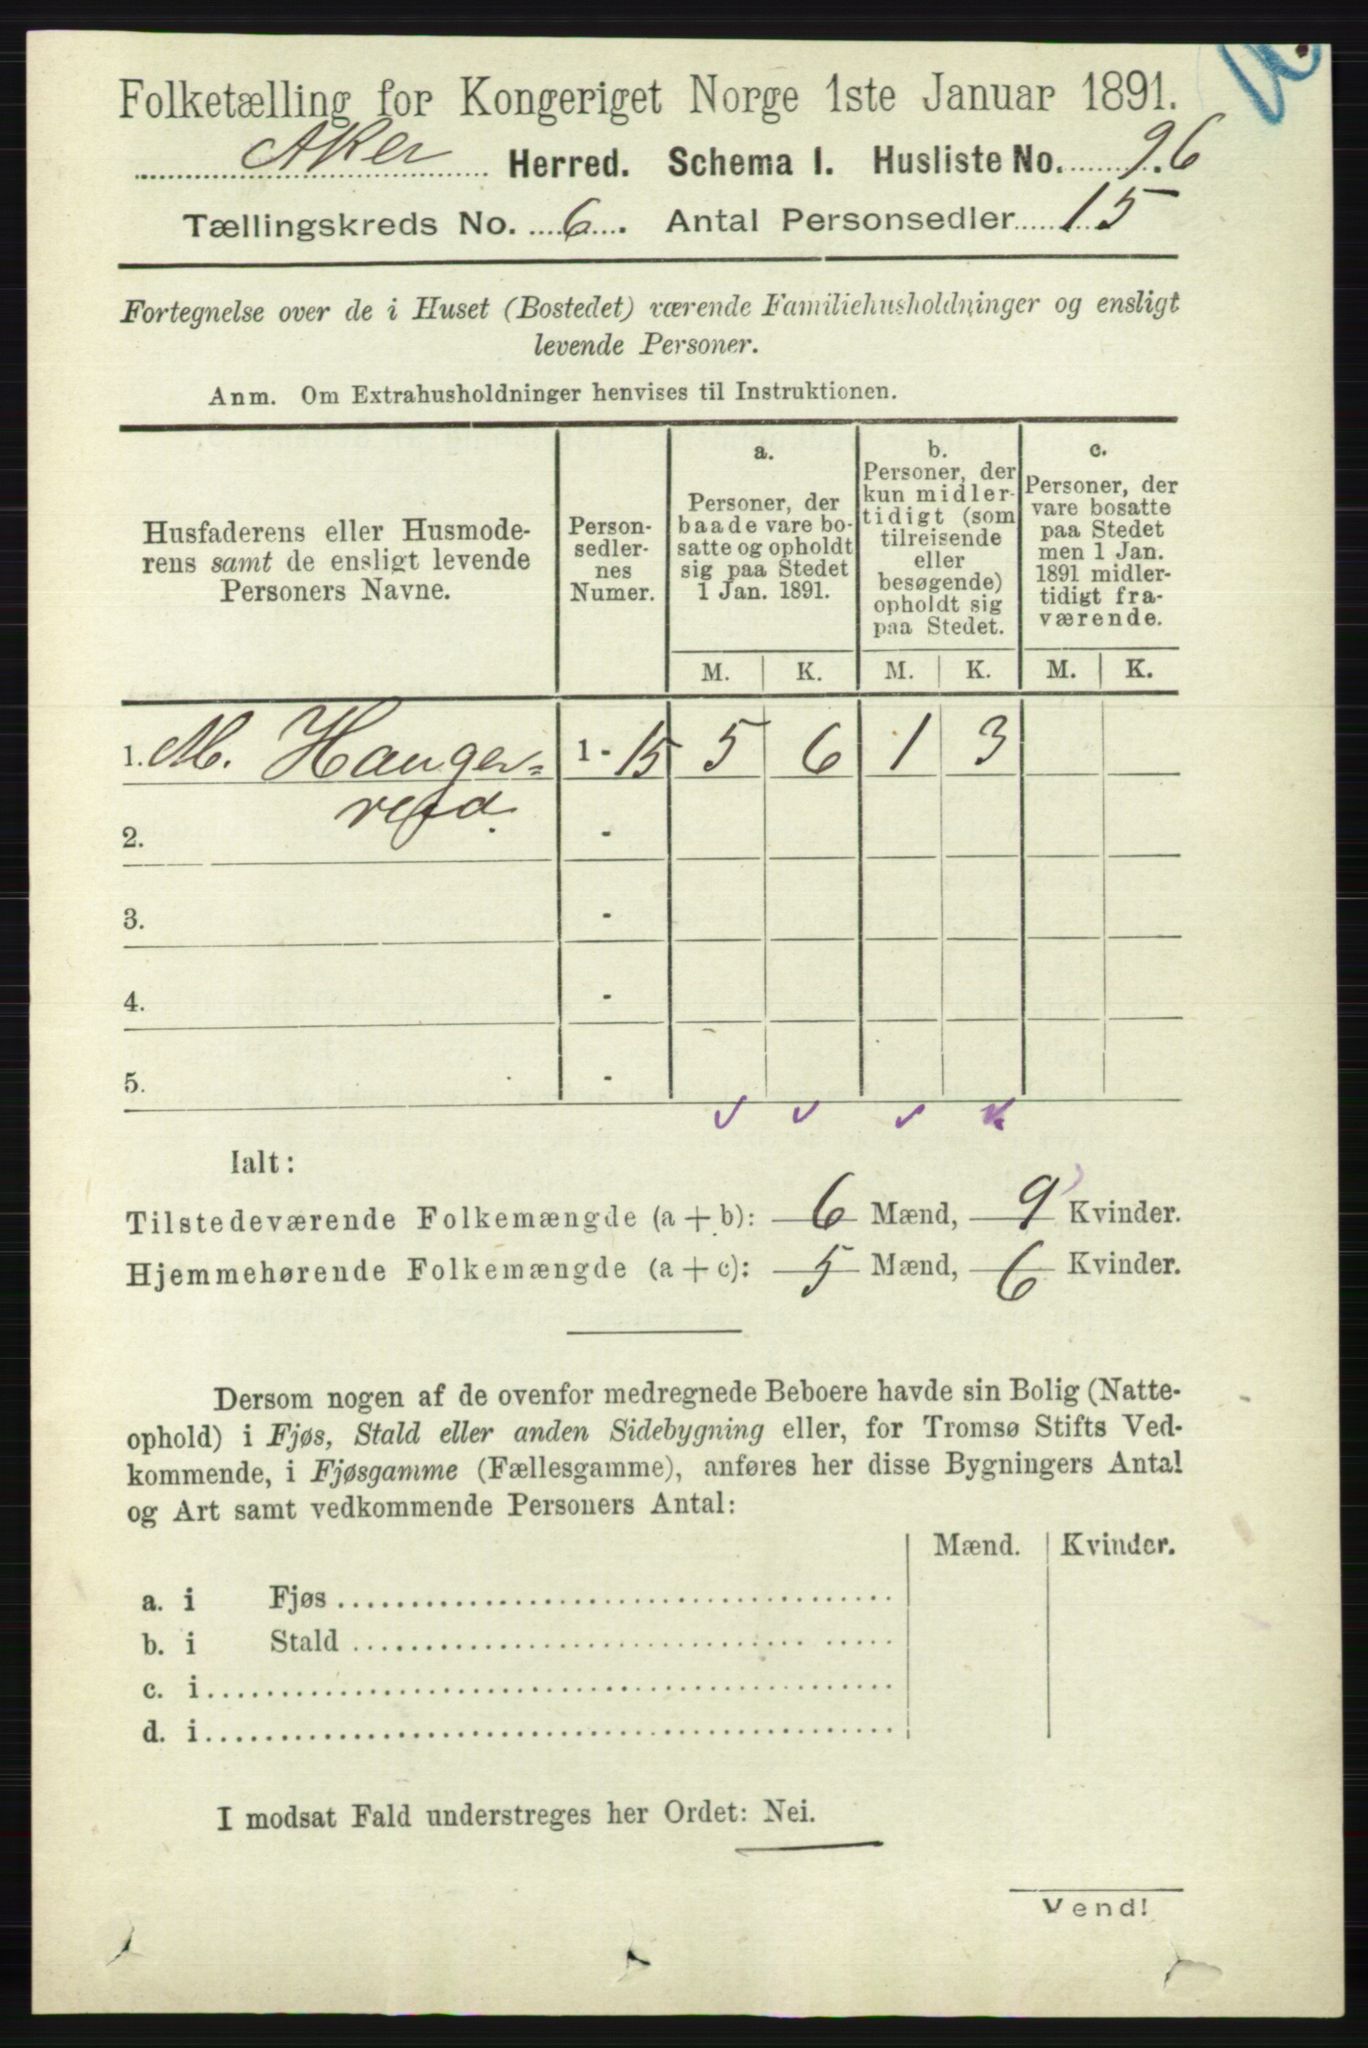 Folketælling for Kongeriget Norge 1ste Januar 1891.
Aker Herred. Schema I. Husliste No. 96
Tællingskreds No. 6. Antal Personsedler 15
Fortegnelse over de i Huset (Bostedet) værende Familiehusholdninger og ensligt
levende Personer.
Anm. Om Extrahusholdninger henvises til Instruktionen.
Husfaderens eller Husmode-
rens samt de ensligt levende
Personers Navne.
Person-
sedler-
nes
Numer.
a.
Personer, der
baade vare bo-
satte og opholdt
sig paa Stedet
1 Jan. 1891.
b.
Personer, der
kun midler-
tidigt (som
tilreisende
eller
besøgende)
opholdt sig
paa Stedet.
c.
Personer, der
vare bosatte
paa Stedet
men 1 Jan.
1891 midler-
tidigt fra-
værende.
M. K. M. K. M. K.
1. M. Hauger= 1 - 15 5 6 1 3
2. -
3. -
4. -
5. -
Ialt:
Tilstedeværende Folkemængde (a + b): 6 Mænd, 9 Kvinder.
Hjemmehørende Folkemængde (a + c): 5 Mænd, 6 Kvinder.
Dersom nogen af de ovenfor medregnede Beboere havde sin Bolig (Natte-
ophold) i Fjøs, Stald eller anden Sidebygning eller, for Tromsø Stifts Ved-
kommende, i Fjøsgamme (Fællesgamme), anføres her disse Bygningers Antal
og Art samt vedkommende Personers Antal:
Mænd. Kvinder.
a. i Fjøs
b. i Stald
c. i
d. i
I modsat Fald understreges her Ordet: Nei.
Vend!